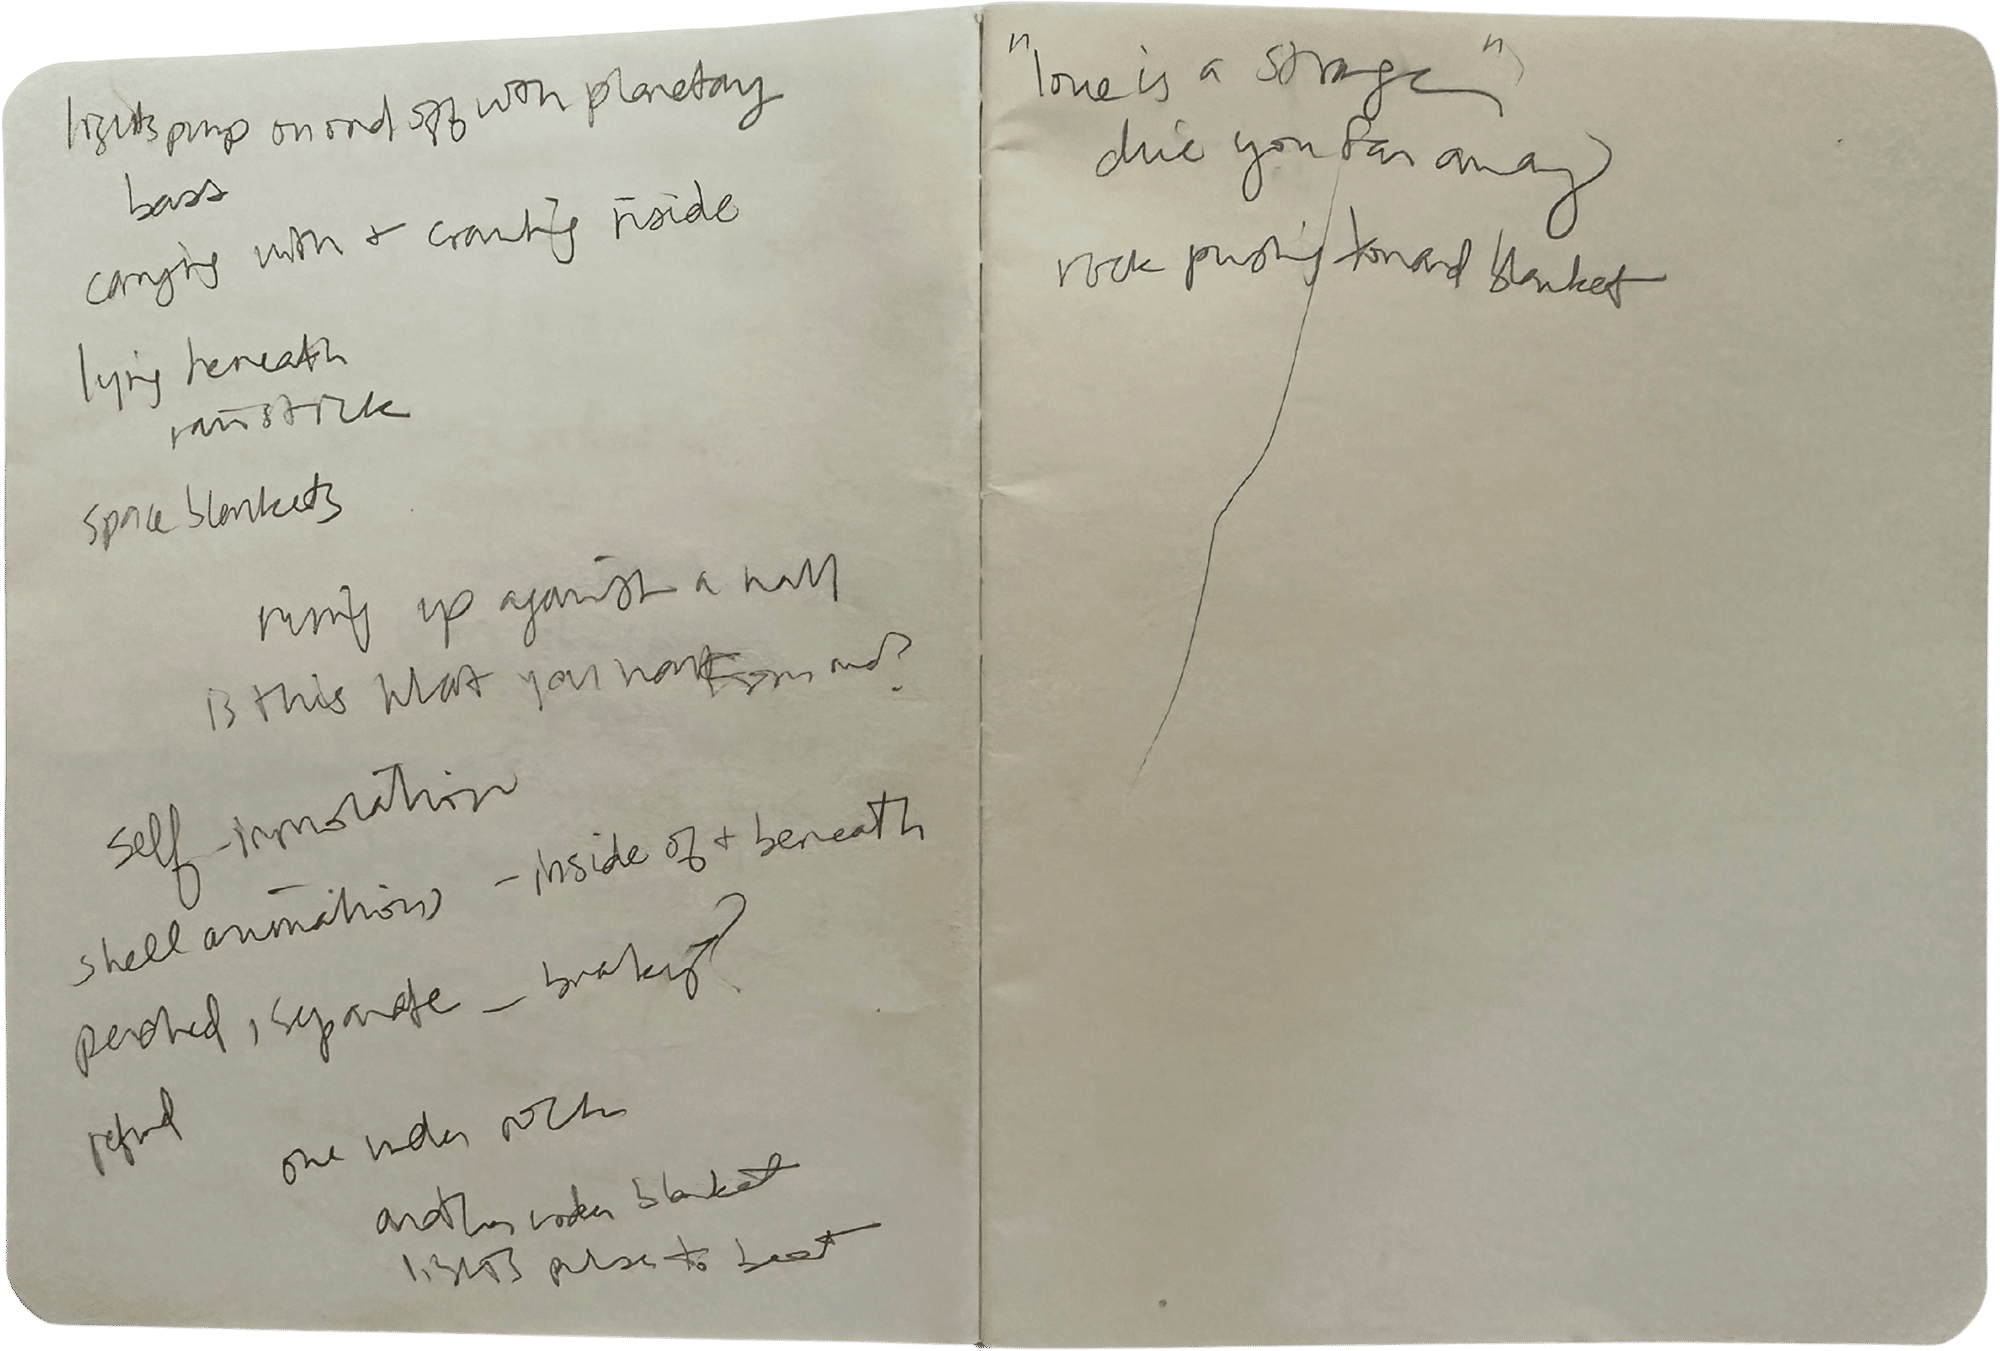 lights pump on and off with planetary
bass
carrying with + crawling inside
lying beneath
rainstick
space blankets
running up against a wall
is this what you want from me?
self-immolation
shell animations - inside of + beneath
perched, separate - breakup?
refund
one under rock
another under blanket
lights pulse to beat
"love is a strange"
drive you far away
rock pushing toward blanket